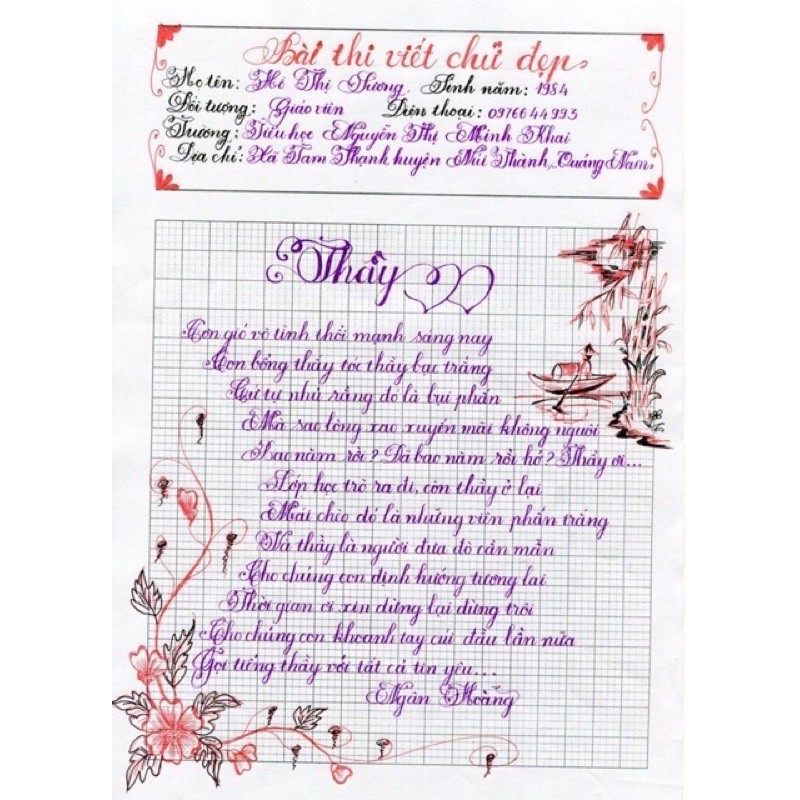 Bài thi viết chữ đẹp
Họ tên: Hồ Thị Sương Sinh năm: 1984
Đối tượng: Giáo viên Điện thoại: 0976644993
Trường: Tiểu học Nguyễn Thị Minh Khai
Địa chỉ: Xã Tam Thạnh huyện Núi Thành, Quảng Nam.
Thầy
Cơn gió vô tình thổi mạnh sáng nay
Con bỗng thấy tóc thầy bạc trắng
Cứ tự nhủ rằng đó là bụi phấn
Mà sao lòng xao xuyến mãi không nguôi
Bao năm rồi? Đã bao năm rồi hở? Thầy ơi...
Lớp học trò ra đi, còn thầy ở lại
Mái chèo đó là những viên phấn trắng
Và thầy là người đưa đò cần mẫn
Cho chúng con định hướng tương lai
Thời gian ơi xin dừng lại đừng trôi
Cho chúng con khoanh tay cúi đầu lần nữa
Gọi tiếng thầy với tất cả tin yêu...
Ngân Hoàng